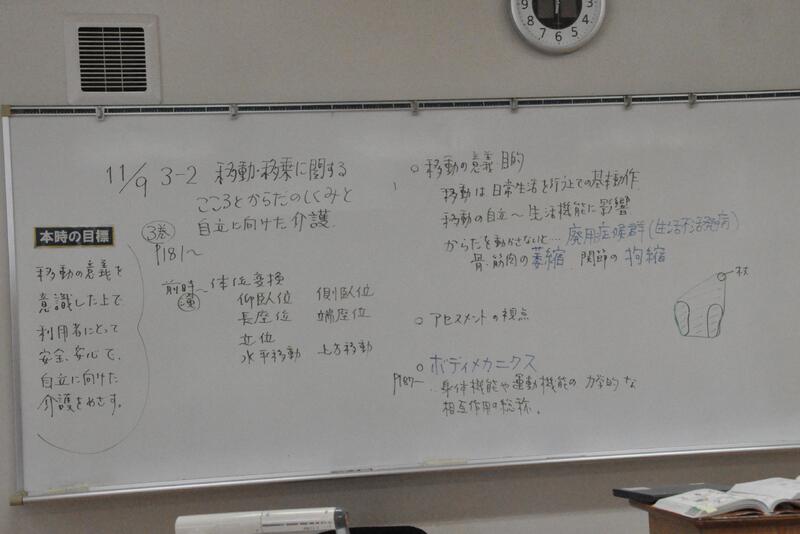 11/9 3-2 移動・移乗に関する
こころとからだのしくみと
自立に向けた介護
本時の目標
移動の意義を
意識した上で
利用者にとって
安全、安心で、
自立に向けた
介護をめざす。
3巻
P181〜
前時〜体位変換
演
仰臥位 側臥位
長座位 端座位
立位
水平移動 上方移動
○移動の意義・目的
移動は日常生活を行う上での基本動作
移動の自立〜生活機能に影響
からだを動かさないと…廃用症候群(生活不活発病)
骨・筋肉の萎縮 関節の拘縮
杖
○アセスメントの視点
○ボディメカニクス
P187〜
身体機能や運動機能の力学的な
相互作用の総称。
3
4
5
6
7
8
9